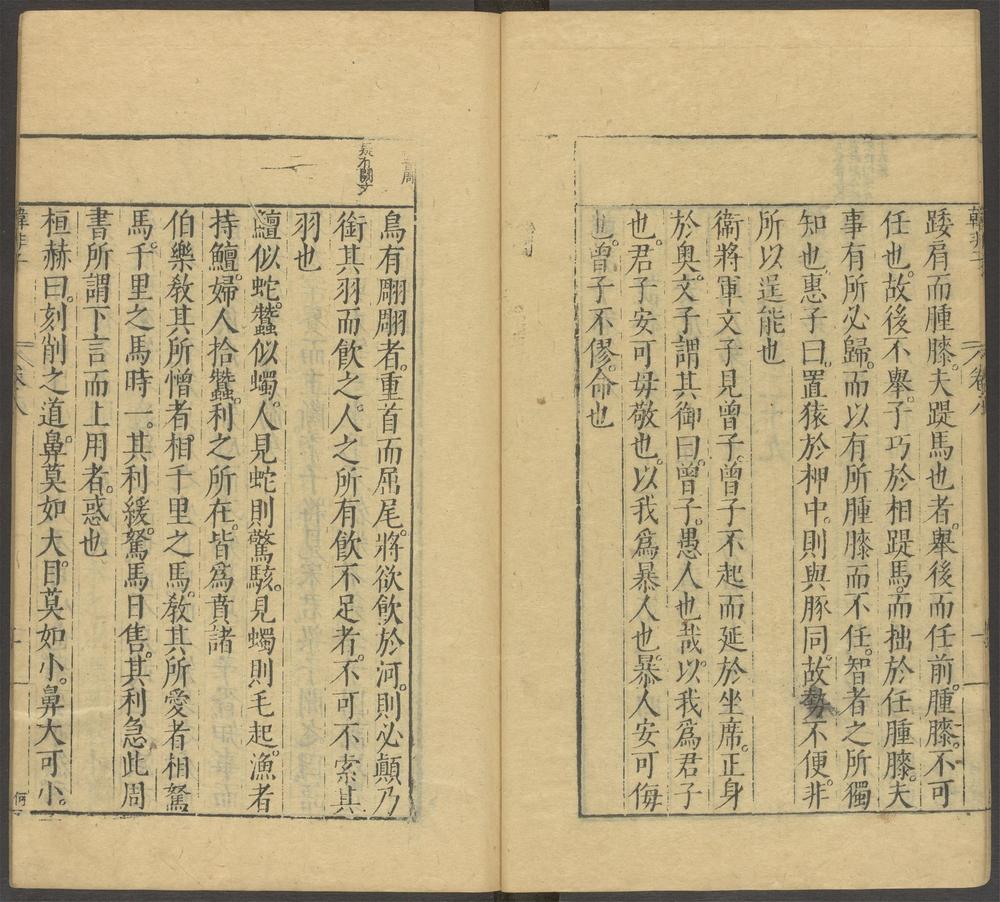 踒肩而腫膝。夫踶馬也者。舉後而任前。腫膝。不可
任也。故後不舉。子巧於相踶馬。而拙於任腫膝。夫
事有所必歸。而以有所腫膝而不任。智者之所獨
知也。惠子曰。置猿於柙中。則與豚同。故勢不便。非
所以逞能也
衞將軍文子見曾子。曾子不起而延於坐席。正身
於奥。文子謂其御曰。曾子。愚人也哉。以我爲君子
也。君子安可毋敬也。以我爲暴人也。暴人安可侮
也。曾子不僇。命也
鳥有翢翢者。重首而屈尾。將欲飮於河。則必顛。乃
銜其羽而飮之。人之所有飮不足者。不可不索其
羽也
鱣似蛇。蠶似蠋。人見蛇則驚駭。見蠋則毛起。漁者
持鱣。婦人拾蠶。利之所在。皆爲賁諸
伯樂敎其所憎者相千里之馬。敎其所愛者相駑
馬。千里之馬時一。其利緩。駑馬日售。其利急。此周
書所謂下言而上用者。惑也
桓赫曰。刻削之道。鼻莫如大。目莫如小。鼻大可小。